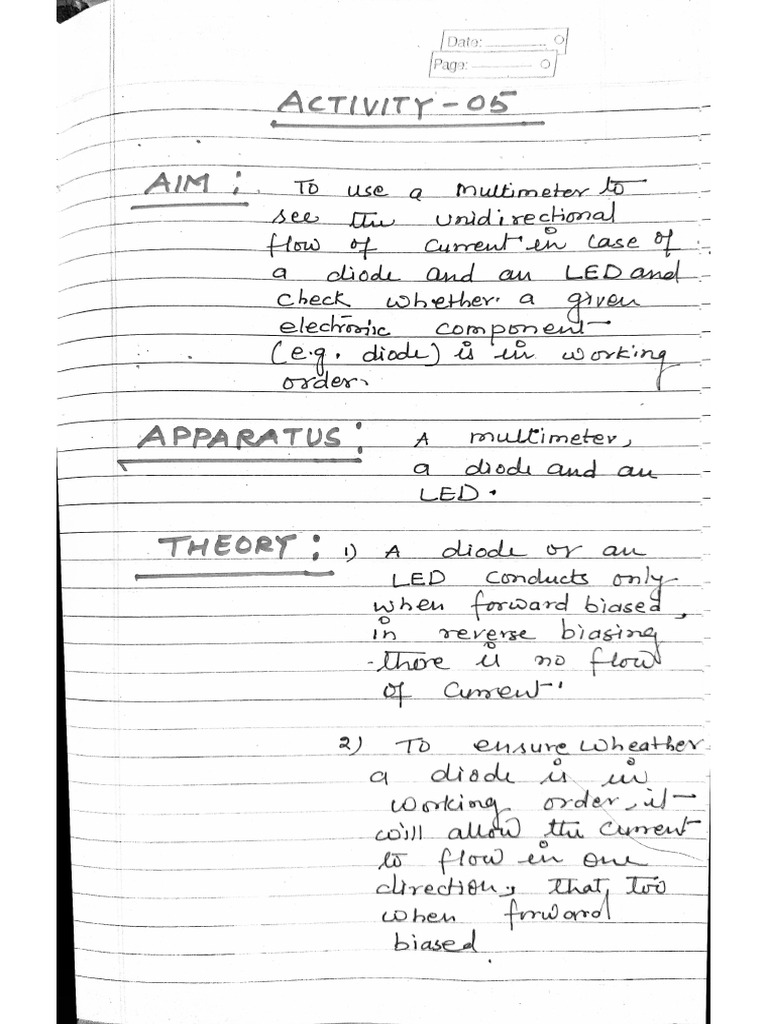 Date:
Page:
ACTIVITY - 05
AIM: To use a multimeter to
see the unidirectional
flow of current in case of
a diode and an LED and
check whether a given
electronic component
(e.g. diode) is in working
order.
APPARATUS: A multimeter,
a diode and an
LED.
THEORY: 1) A diode or an
LED conducts only
when forward biased,
in reverse biasing
there is no flow
of current.
2) To ensure wheather
a diode is in
working order, it
will allow the current
to flow in one
direction, that too
when forward
biased.